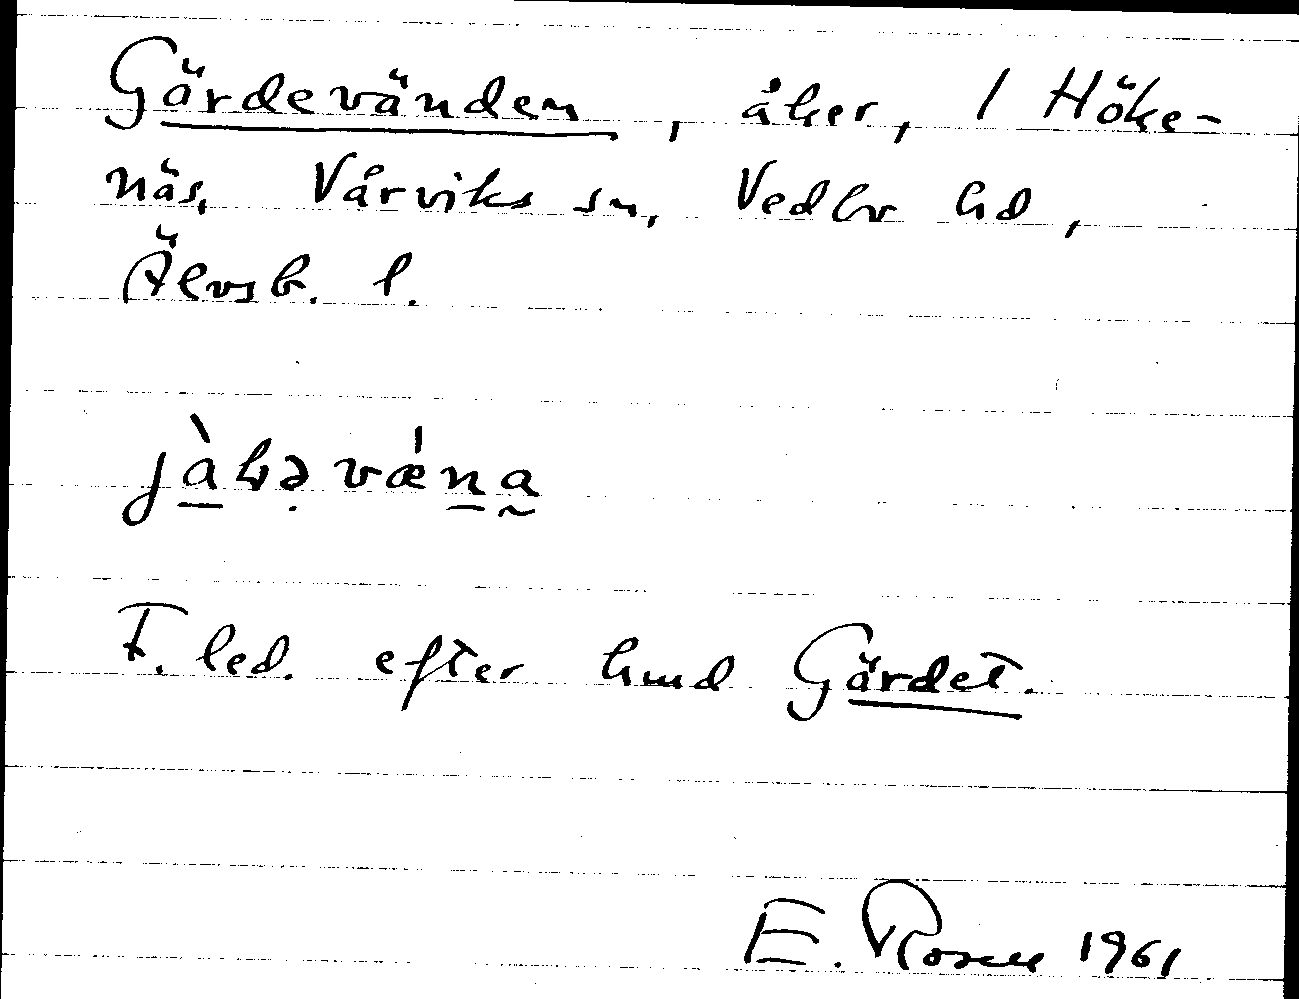 Gärdevänden, åker, 1 Höke-
näs, Vårviks sn, Vedbo hd,
Älvsb. l.
F. led. efter hmd Gärdet.
E. Rosell 1961